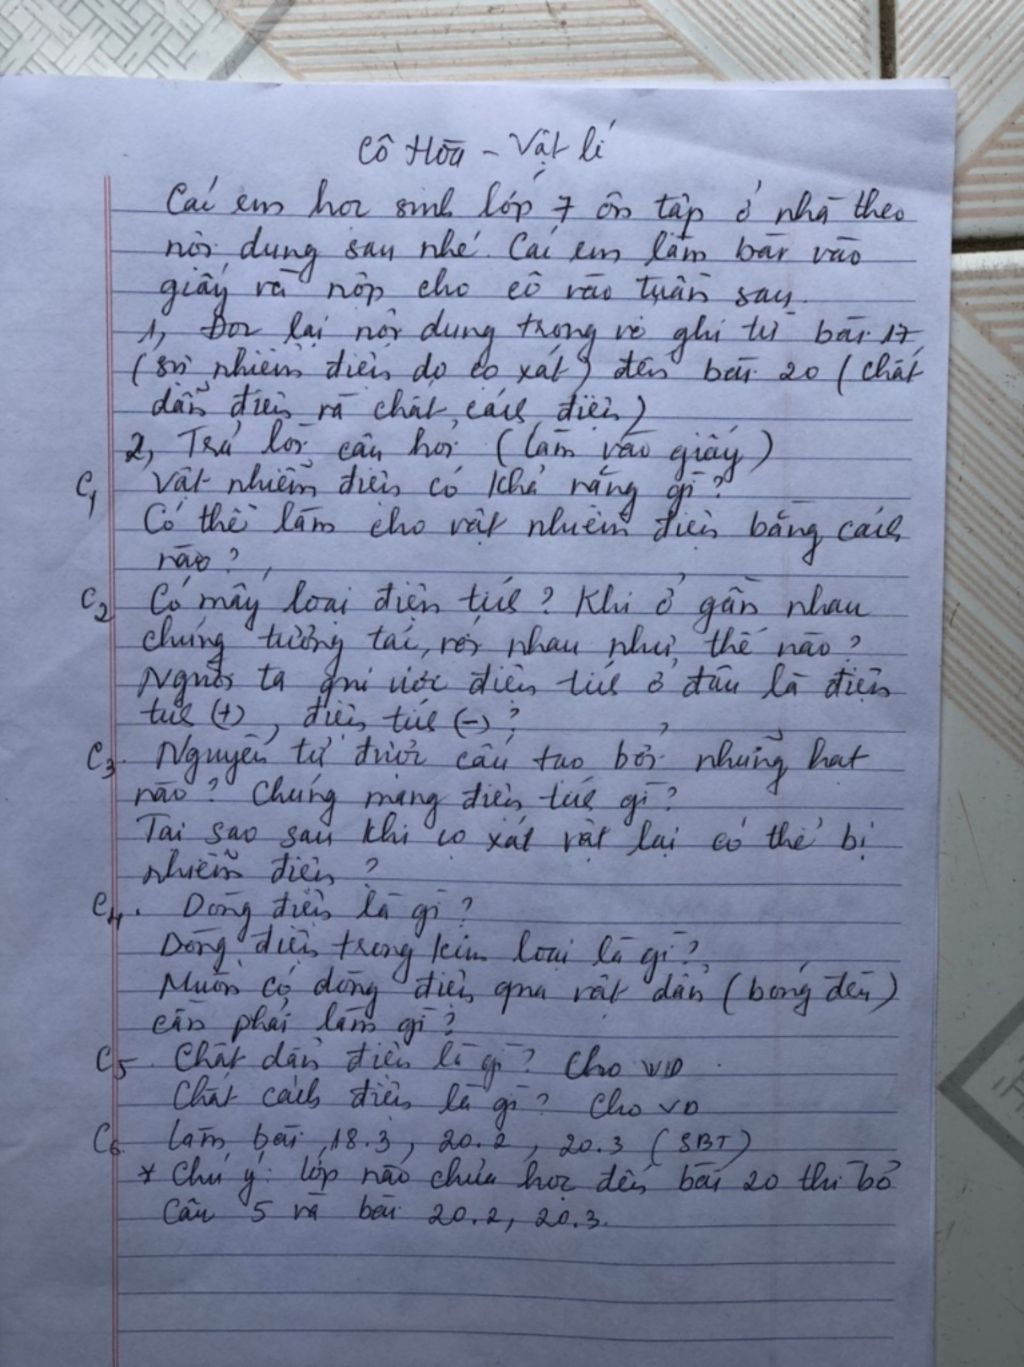 Cô Hòa - Vật lí
Các em học sinh lớp 7 ôn tập ở nhà theo
nội dung sau nhé. Các em làm bài vào
giấy và nộp cho cô vào tuần sau.
1, Đọc lại nội dung trong vở ghi từ bài 17
(sự nhiễm điện do cọ xát) đến bài 20 (chất
dẫn điện và chất cách điện)
2, Trả lời câu hỏi (làm vào giấy)
C1 Vật nhiễm điện có khả năng gì?
Có thể làm cho vật nhiễm điện bằng cách
nào?
C2 Có mấy loại điện tích? Khi ở gần nhau
chúng tương tác với nhau như thế nào?
Người ta qui ước điện tích ở đâu là điện
tích (+), điện tích (-)?
C3. Nguyên tử được cấu tạo bởi những hạt
nào? Chúng mang điện tích gì?
Tại sao sau khi cọ xát vật lại có thể bị
nhiễm điện?
C4. Dòng điện là gì?
Dòng điện trong kim loại là gì?
Muốn có dòng điện qua vật dẫn (bóng đèn)
cần phải làm gì?
C5. Chất dẫn điện là gì? Cho VD.
Chất cách điện là gì? Cho VD
C6 Làm bài 18.3, 20.2, 20.3 (SBT)
* Chú ý: lớp nào chưa học đến bài 20 thì bỏ
Câu 5 và bài 20.2, 20.3.